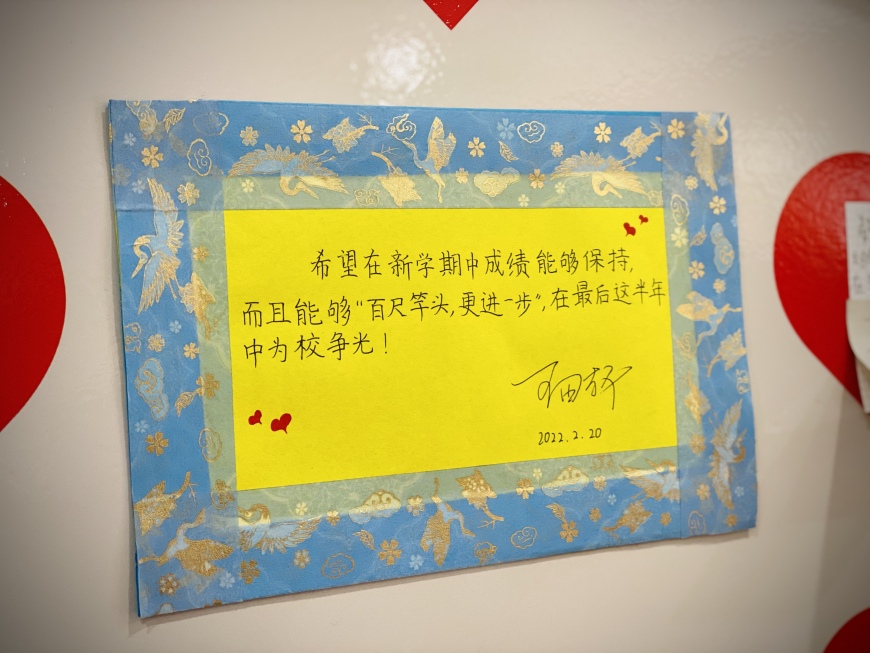 希望在新学期中成绩能够保持,
而且能够“百尺竿头,更进一步”,在最后这半年
中为校争光!
2022.2.20